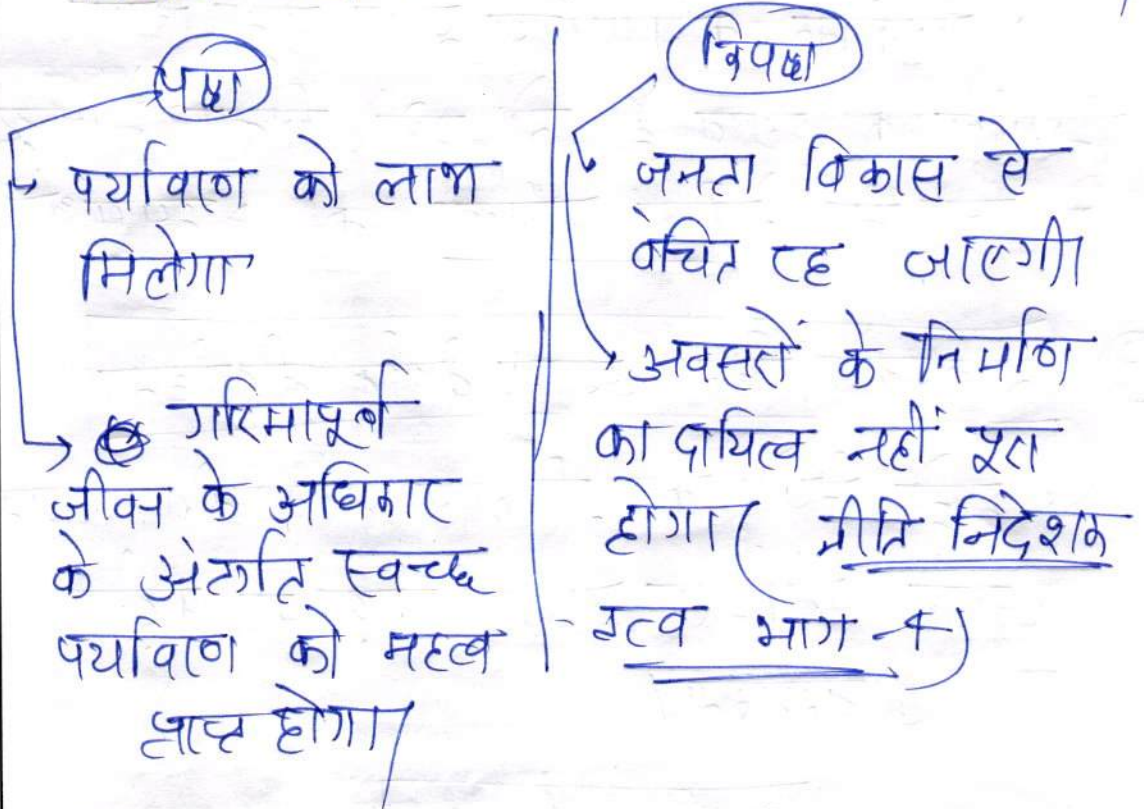 पक्ष
पर्यावरण को लाभ
मिलेगा
गरिमापूर्ण
जीवन के अधिकार
के अंतर्गत स्वच्छ
पर्यावरण को महत्व
प्राप्त होगा।
विपक्ष
जनता विकास से
वंचित रह जाएगी।
अवसरों के निर्माण
का दायित्व नहीं पूरा
होगा ( नीति निदेशक
तत्व भाग -4)